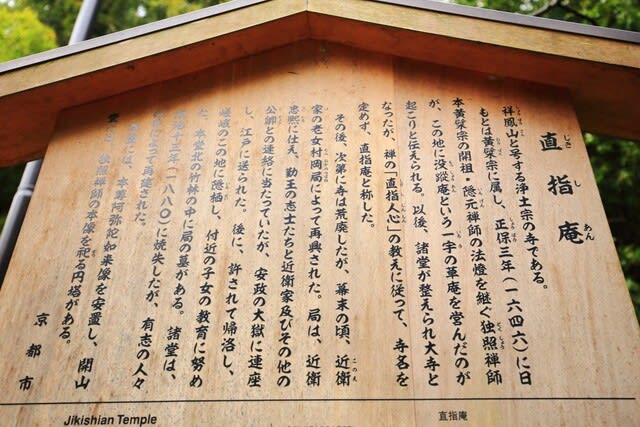 直指庵
じきしあん
祥鳳山と号する浄土宗の寺である。
もとは黄檗宗に属し、正保三年(一六四六)に日
本黄檗宗の開祖・隠元禅師の法燈を継ぐ独照禅師
が、この地に没蹤庵という一宇の草庵を営んだのが
起こりと伝えられる。以後、諸堂が整えられ大寺と
なったが、禅の「直指人心」の教えに従って、寺名を
定めず、直指庵と称した。
その後、次第に寺は荒廃したが、幕末の頃、近衛
家の老女村岡局によって再興された。局は、近衛
忠熙に仕え、勤王の志士たちと近衛家及びその他の
公卿との連絡に当たっていたが、安政の大獄に連座
し、江戸に送られた。後に、許されて帰洛し、
嵯峨のこの地に隠栖し、付近の子女の教育に努め
た。本堂北の竹林の中に局の墓がある。諸堂は、
十三年(一八八〇)に焼失したが、有志の人々
によって再建された。
には、本尊阿弥陀如来像を安置し、開山
独照禅師の木像を祀る円塔がある。
京都市
Jikishian Temple
直指庵